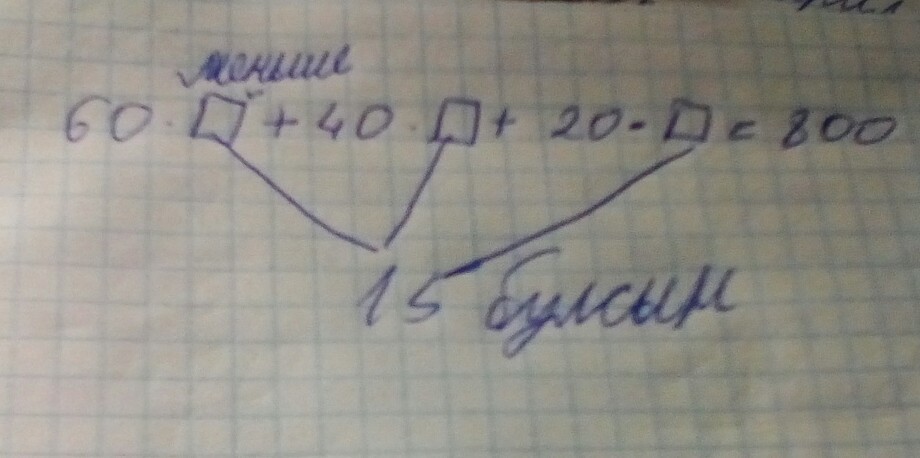 меньше
60 · □ + 40 · □ + 20 · □ = 800
15 булсын